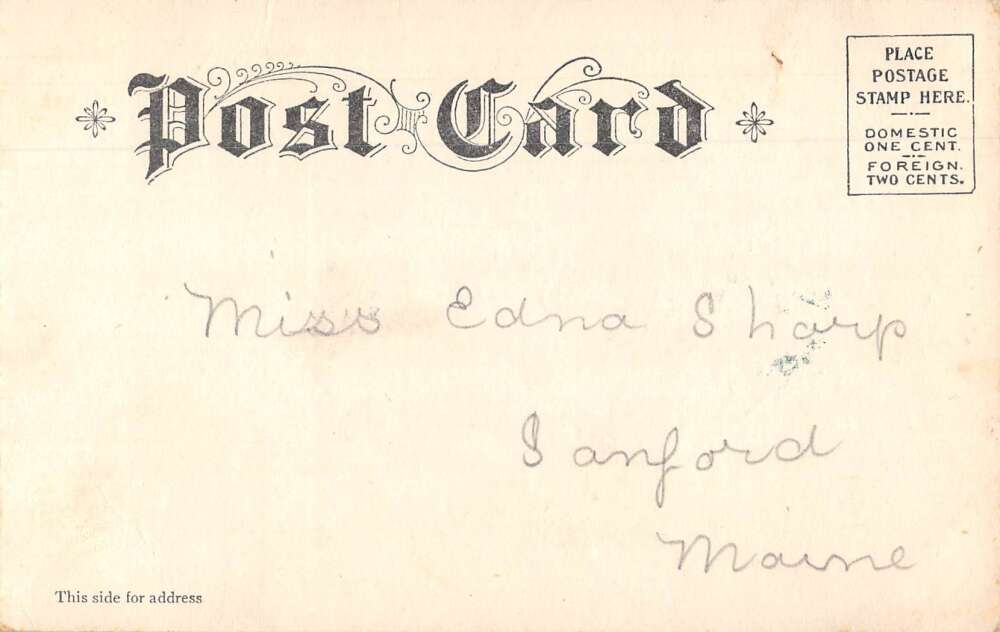 Post Card
PLACE
POSTAGE
STAMP HERE.
DOMESTIC
ONE CENT.
FOREIGN.
TWO CENTS.
Miss Edna Sharp
Sanford
Maine
This side for address